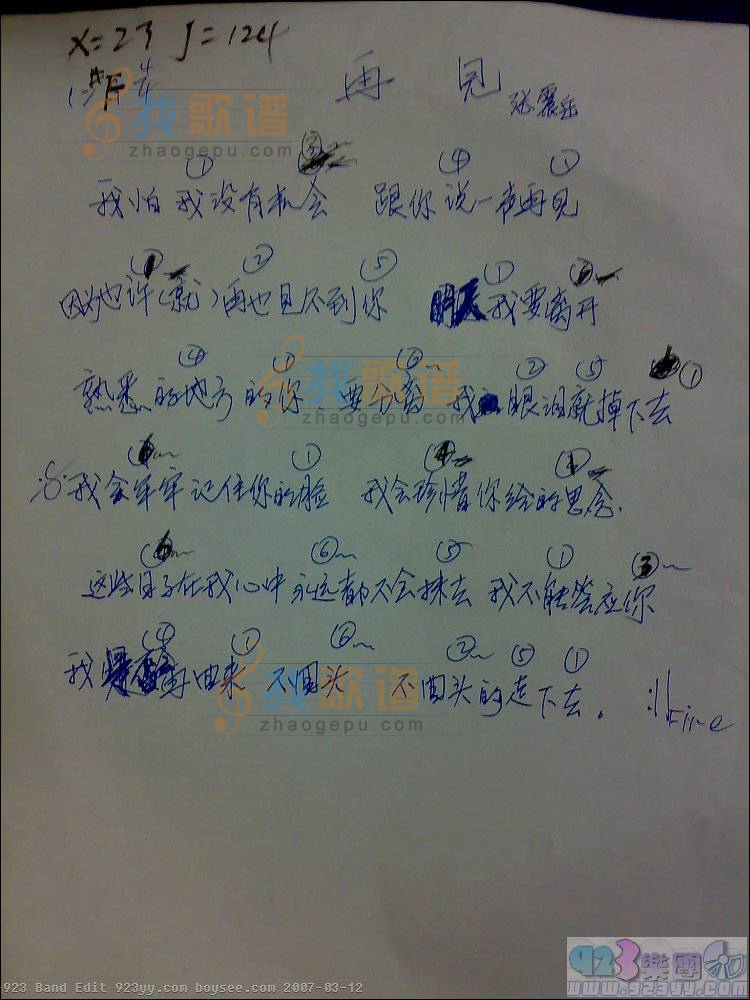 X=23 J=124
1=#F 4/4
再见 张震岳
① ③ ④ ①
我怕我没有机会 跟你说一声再见
① ② ⑤ ①
因为也许(就)再也见不到你 明天我要离开
④ ① ⑥ ② ⑤ ①
熟悉的地方的你 要分离 我 眼泪就掉下去
① ④
我会牢牢记住你的脸 我会珍惜你给的思念.
⑥ ⑤ ① ③
这些日子在我心中永远都不会抹去 我不能答应你
④ ① ⑥ ② ⑤ ①
我 再回来 不回头 不回头的走下去. :|| Fine
找歌谱
zhaogepu.com
找歌谱
zhaogepu.com
找歌谱
zhaogepu.com
923 Band Edit 923yy.com boysee.com 2007-03-12
923樂團
www.923yy.com